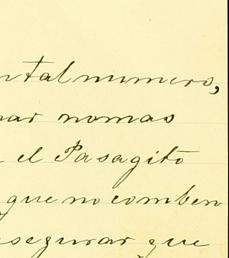 ntal numero,
nar nomas
el Pasagito
que no comben
segurar que